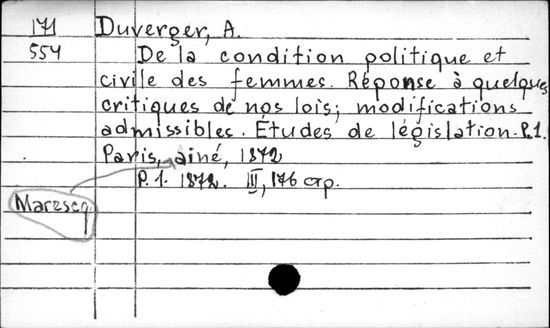 171 Duverger, A.
554 De la condition politique et
civile des femmes. Réponse à quelques
critiques de nos lois; modifications
admissibles. Études de législation. P.1.
Paris, ainé, 1872
P. 1. 1872. III, 176 стр.
Marescq